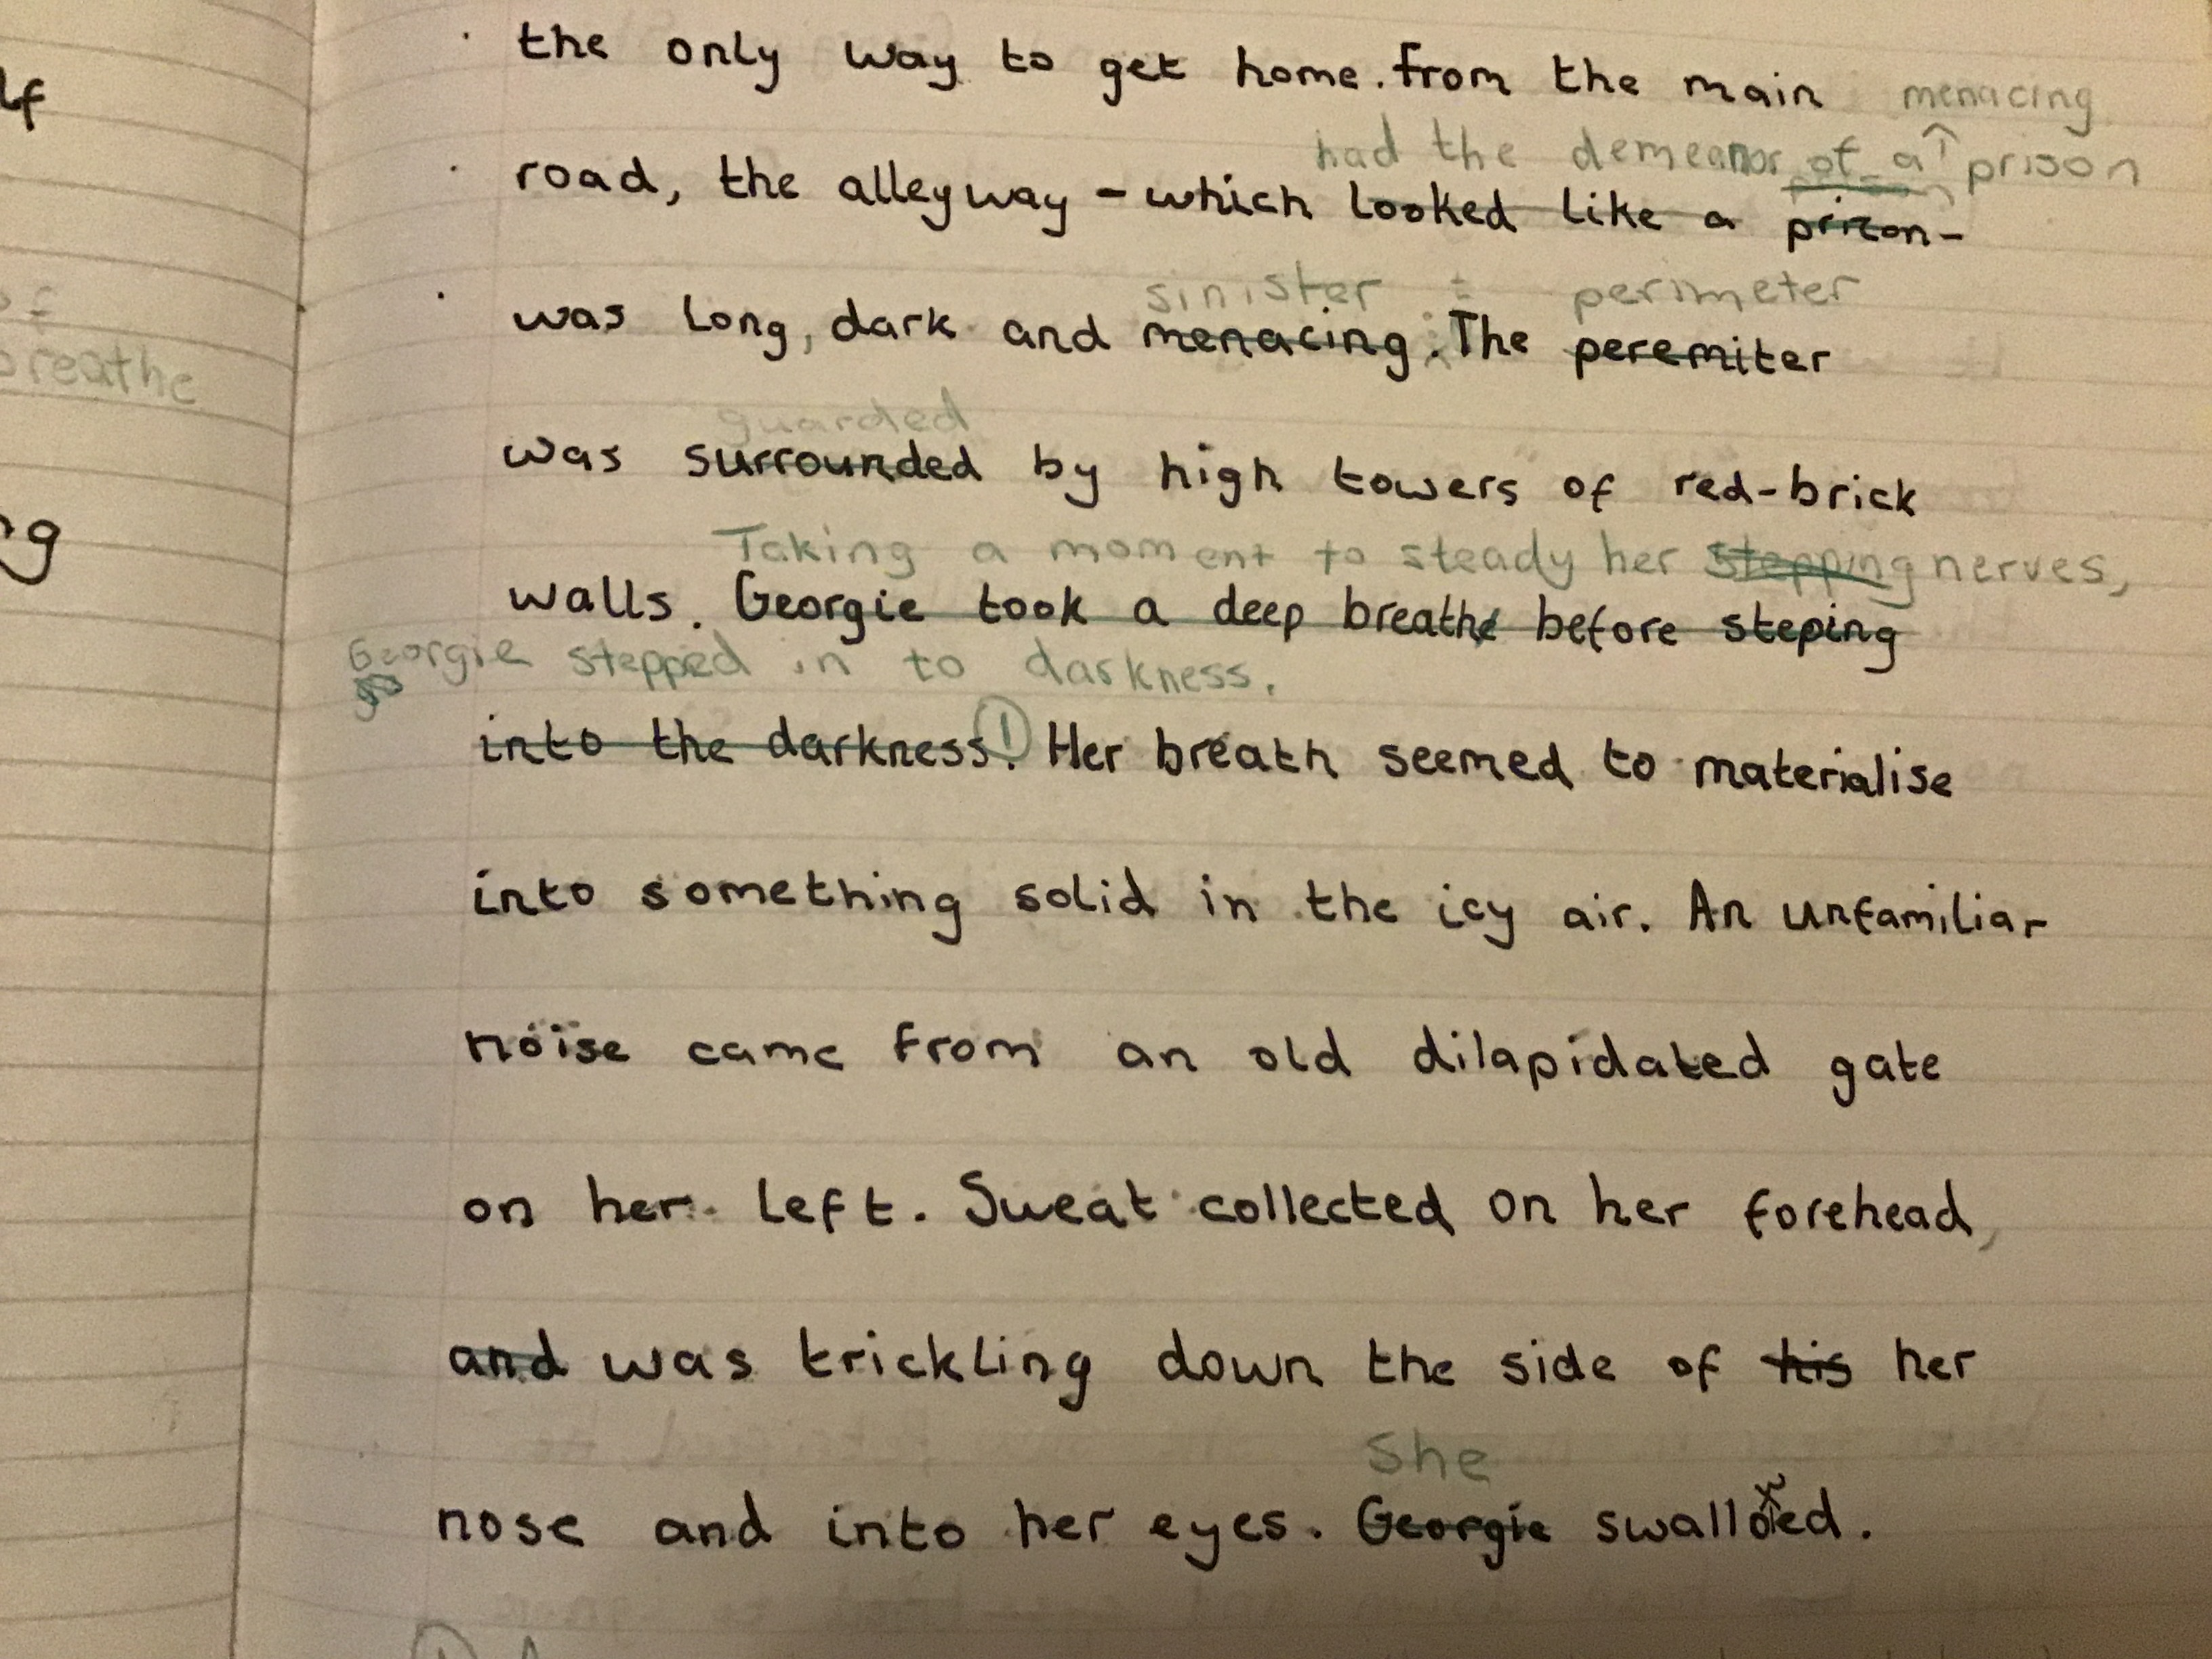 lf
the only way to get home. from the main menacing
had the demeanor of a prison
road, the alleyway - which looked like a prizon-
sinister perimeter
was long, dark and menacing. The peremiter
of
breathe
guarded
was surrounded by high towers of red-brick
Taking a moment to steady her stepping nerves,
walls. Georgie took a deep breathe before steping
Georgie stepped in to darkness.
into the darkness. 1 Her breath seemed to materialise
into something solid in the icy air. An unfamiliar
noise came from an old dilapidated gate
on her left. Sweat collected on her forehead,
and was trickling down the side of his her
She
nose and into her eyes. Georgie swallowed.